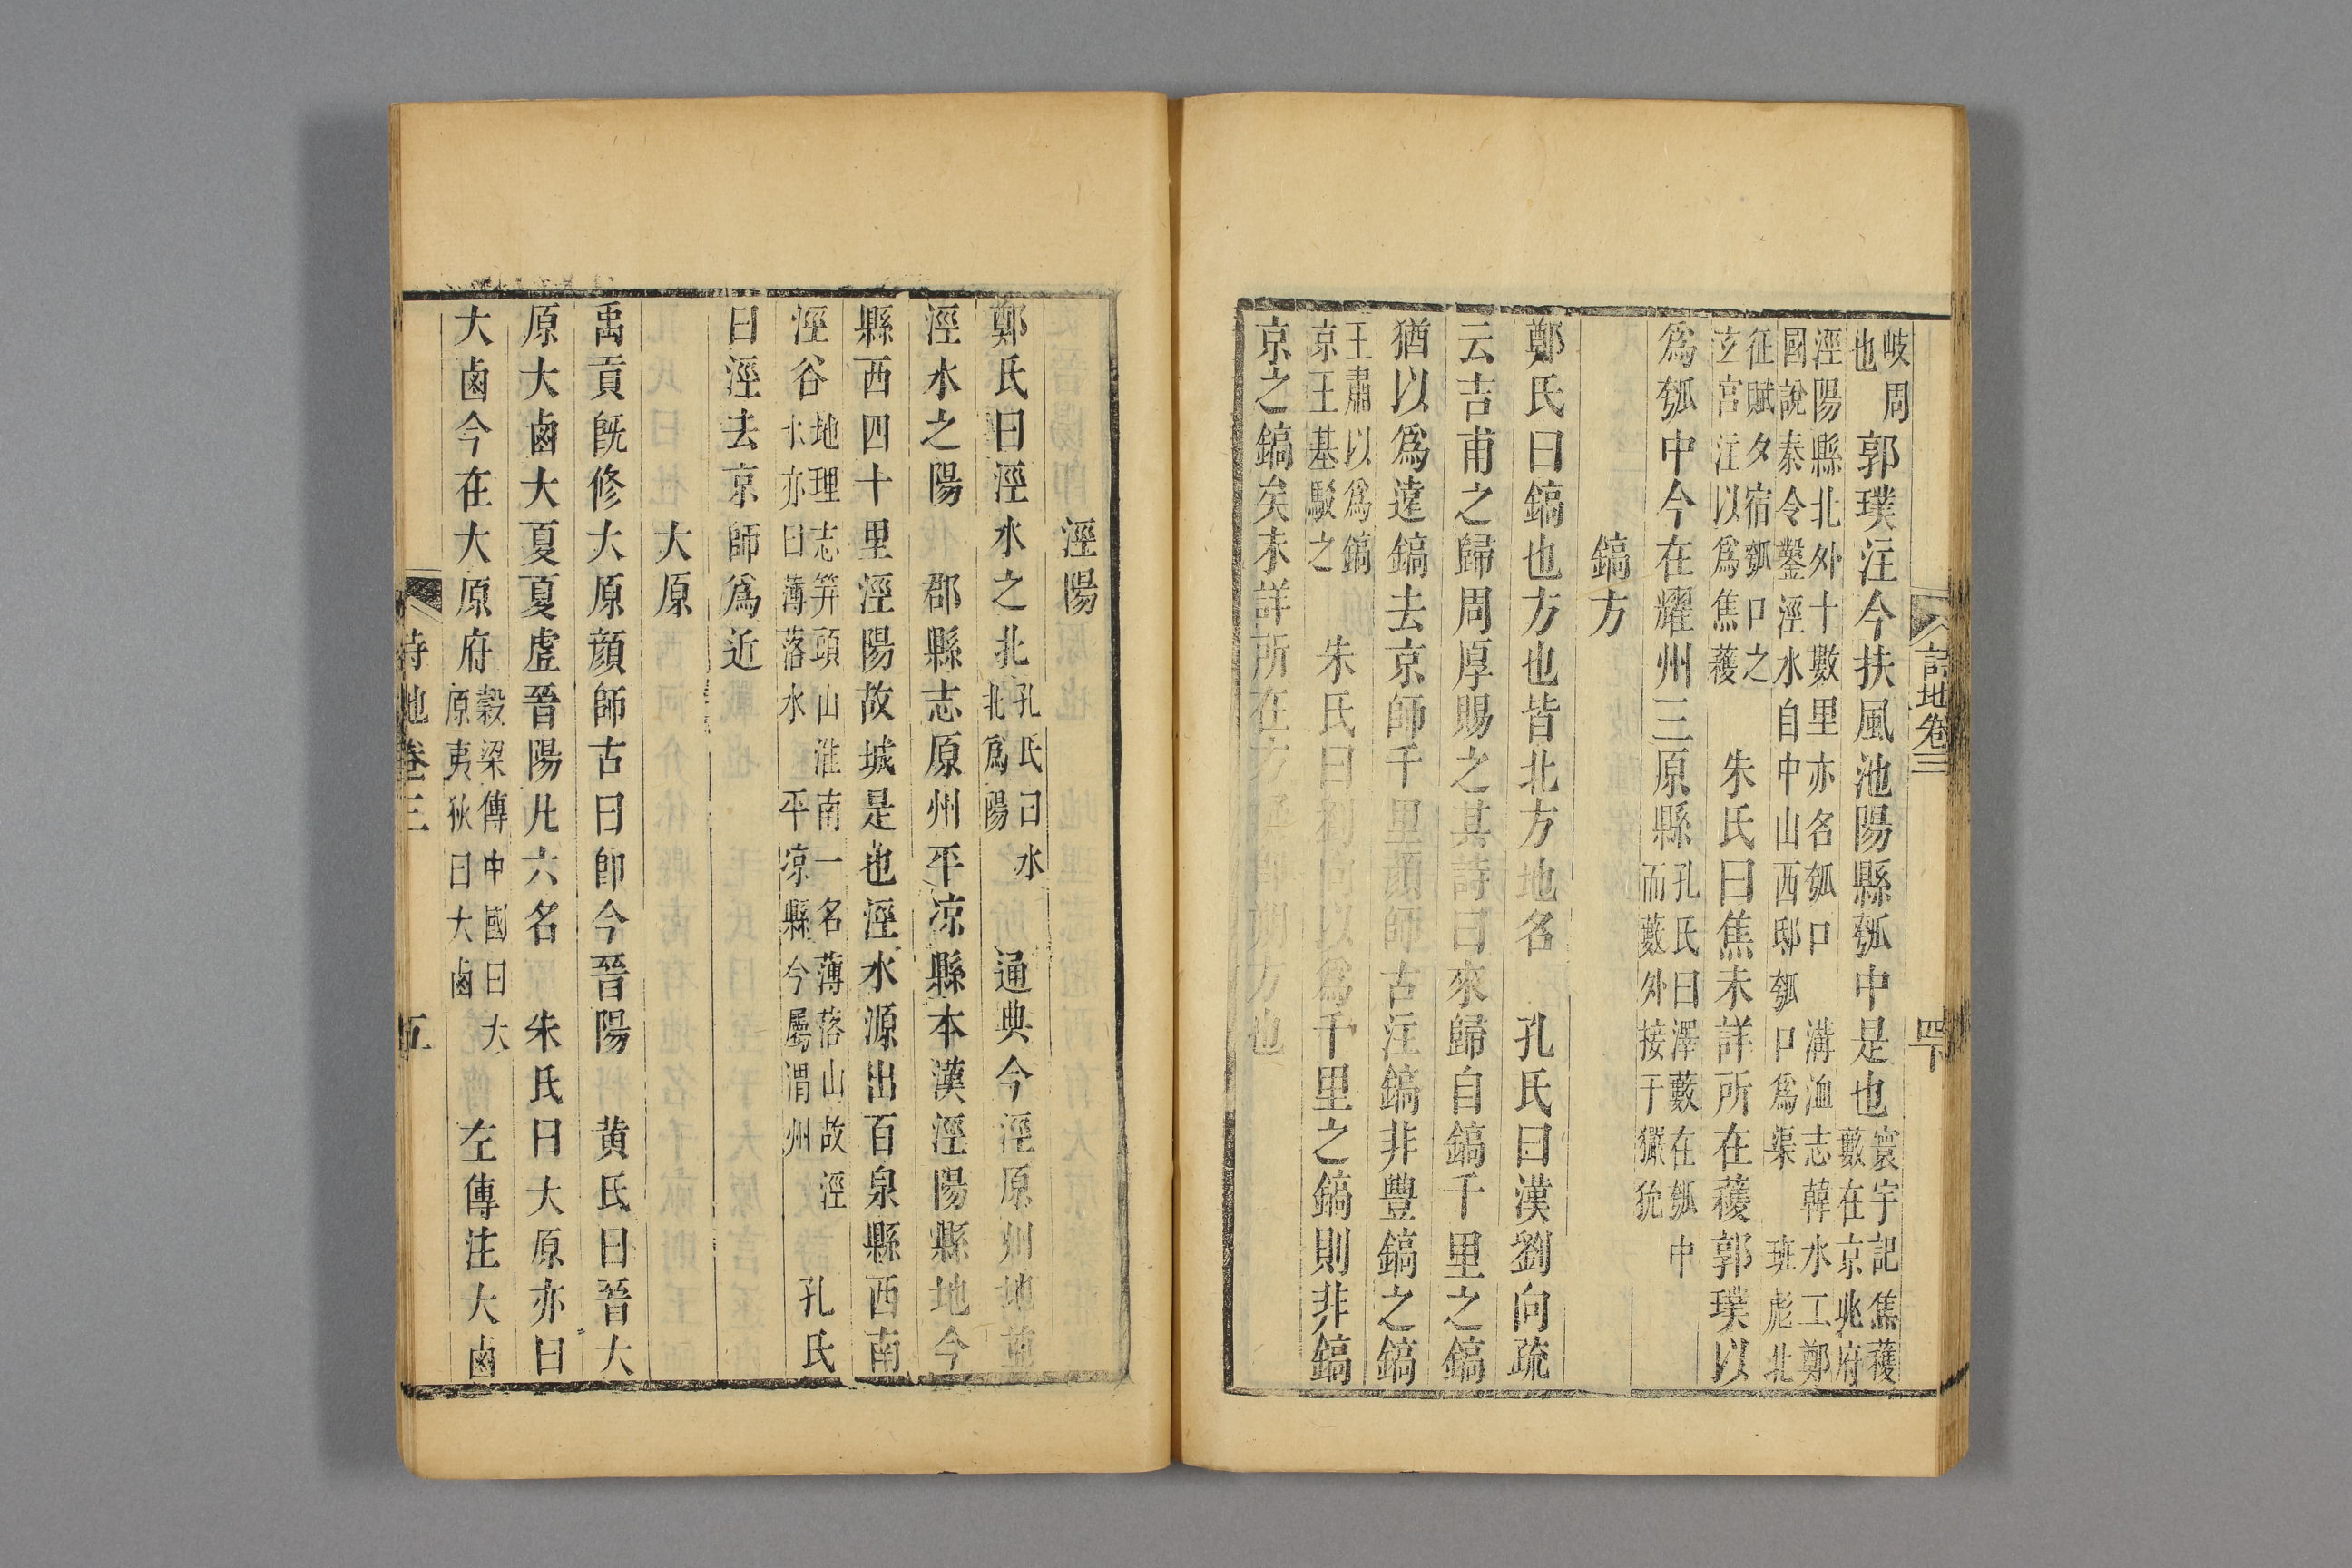 詩地卷三
四下
岐周也郭璞注今扶風池陽縣瓠中是也寰宇記焦穫藪在京兆府
涇陽縣北外十數里亦名瓠口溝洫志韓水工鄭國說秦令鑿涇水自中山西邸瓠口爲渠班彪北
征賦夕宿瓠口之玄宮注以爲焦穫朱氏曰焦未詳所在穫郭璞以
爲瓠中今在耀州三原縣孔氏曰澤藪在瓠中而藪外接于玁狁
鎬方
鄭氏曰鎬也方也皆北方地名孔氏曰漢劉向疏
云吉甫之歸周厚賜之其詩曰來歸自鎬千里之鎬
猶以爲遠鎬去京師千里顔師古注鎬非豐鎬之鎬
王肅以爲鎬京王基駁之朱氏曰劉向以爲千里之鎬則非鎬
京之鎬矣未詳所在方
方也
涇陽
鄭氏曰涇水之北孔氏曰水北爲陽通典今涇原州地並
涇水之陽郡縣志原州平凉縣本漢涇陽縣地今
縣西四十里涇陽故城是也涇水源出百泉縣西南
涇谷地理志笄頭山淮南一名薄落山故涇水亦曰薄落水平凉縣今屬渭州孔氏
曰涇去京師爲近
大原
禹貢旣修大原顔師古曰卽今晉陽黄氏曰晉大
原大鹵大夏夏虛晉陽凡六名朱氏曰大原亦曰
大鹵今在大原府穀梁傳中國曰大原夷狄曰大鹵左傳注大鹵
詩地卷三
五